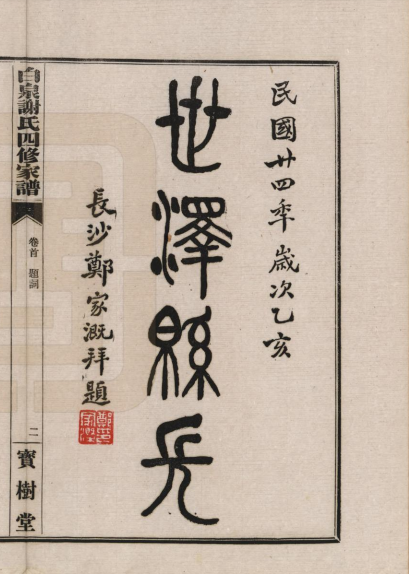 民國廿四季歲次乙亥
世澤緜長
長沙鄭家溉拜題
白泉謝氏四修家譜
卷首 題詞
二
寶樹堂